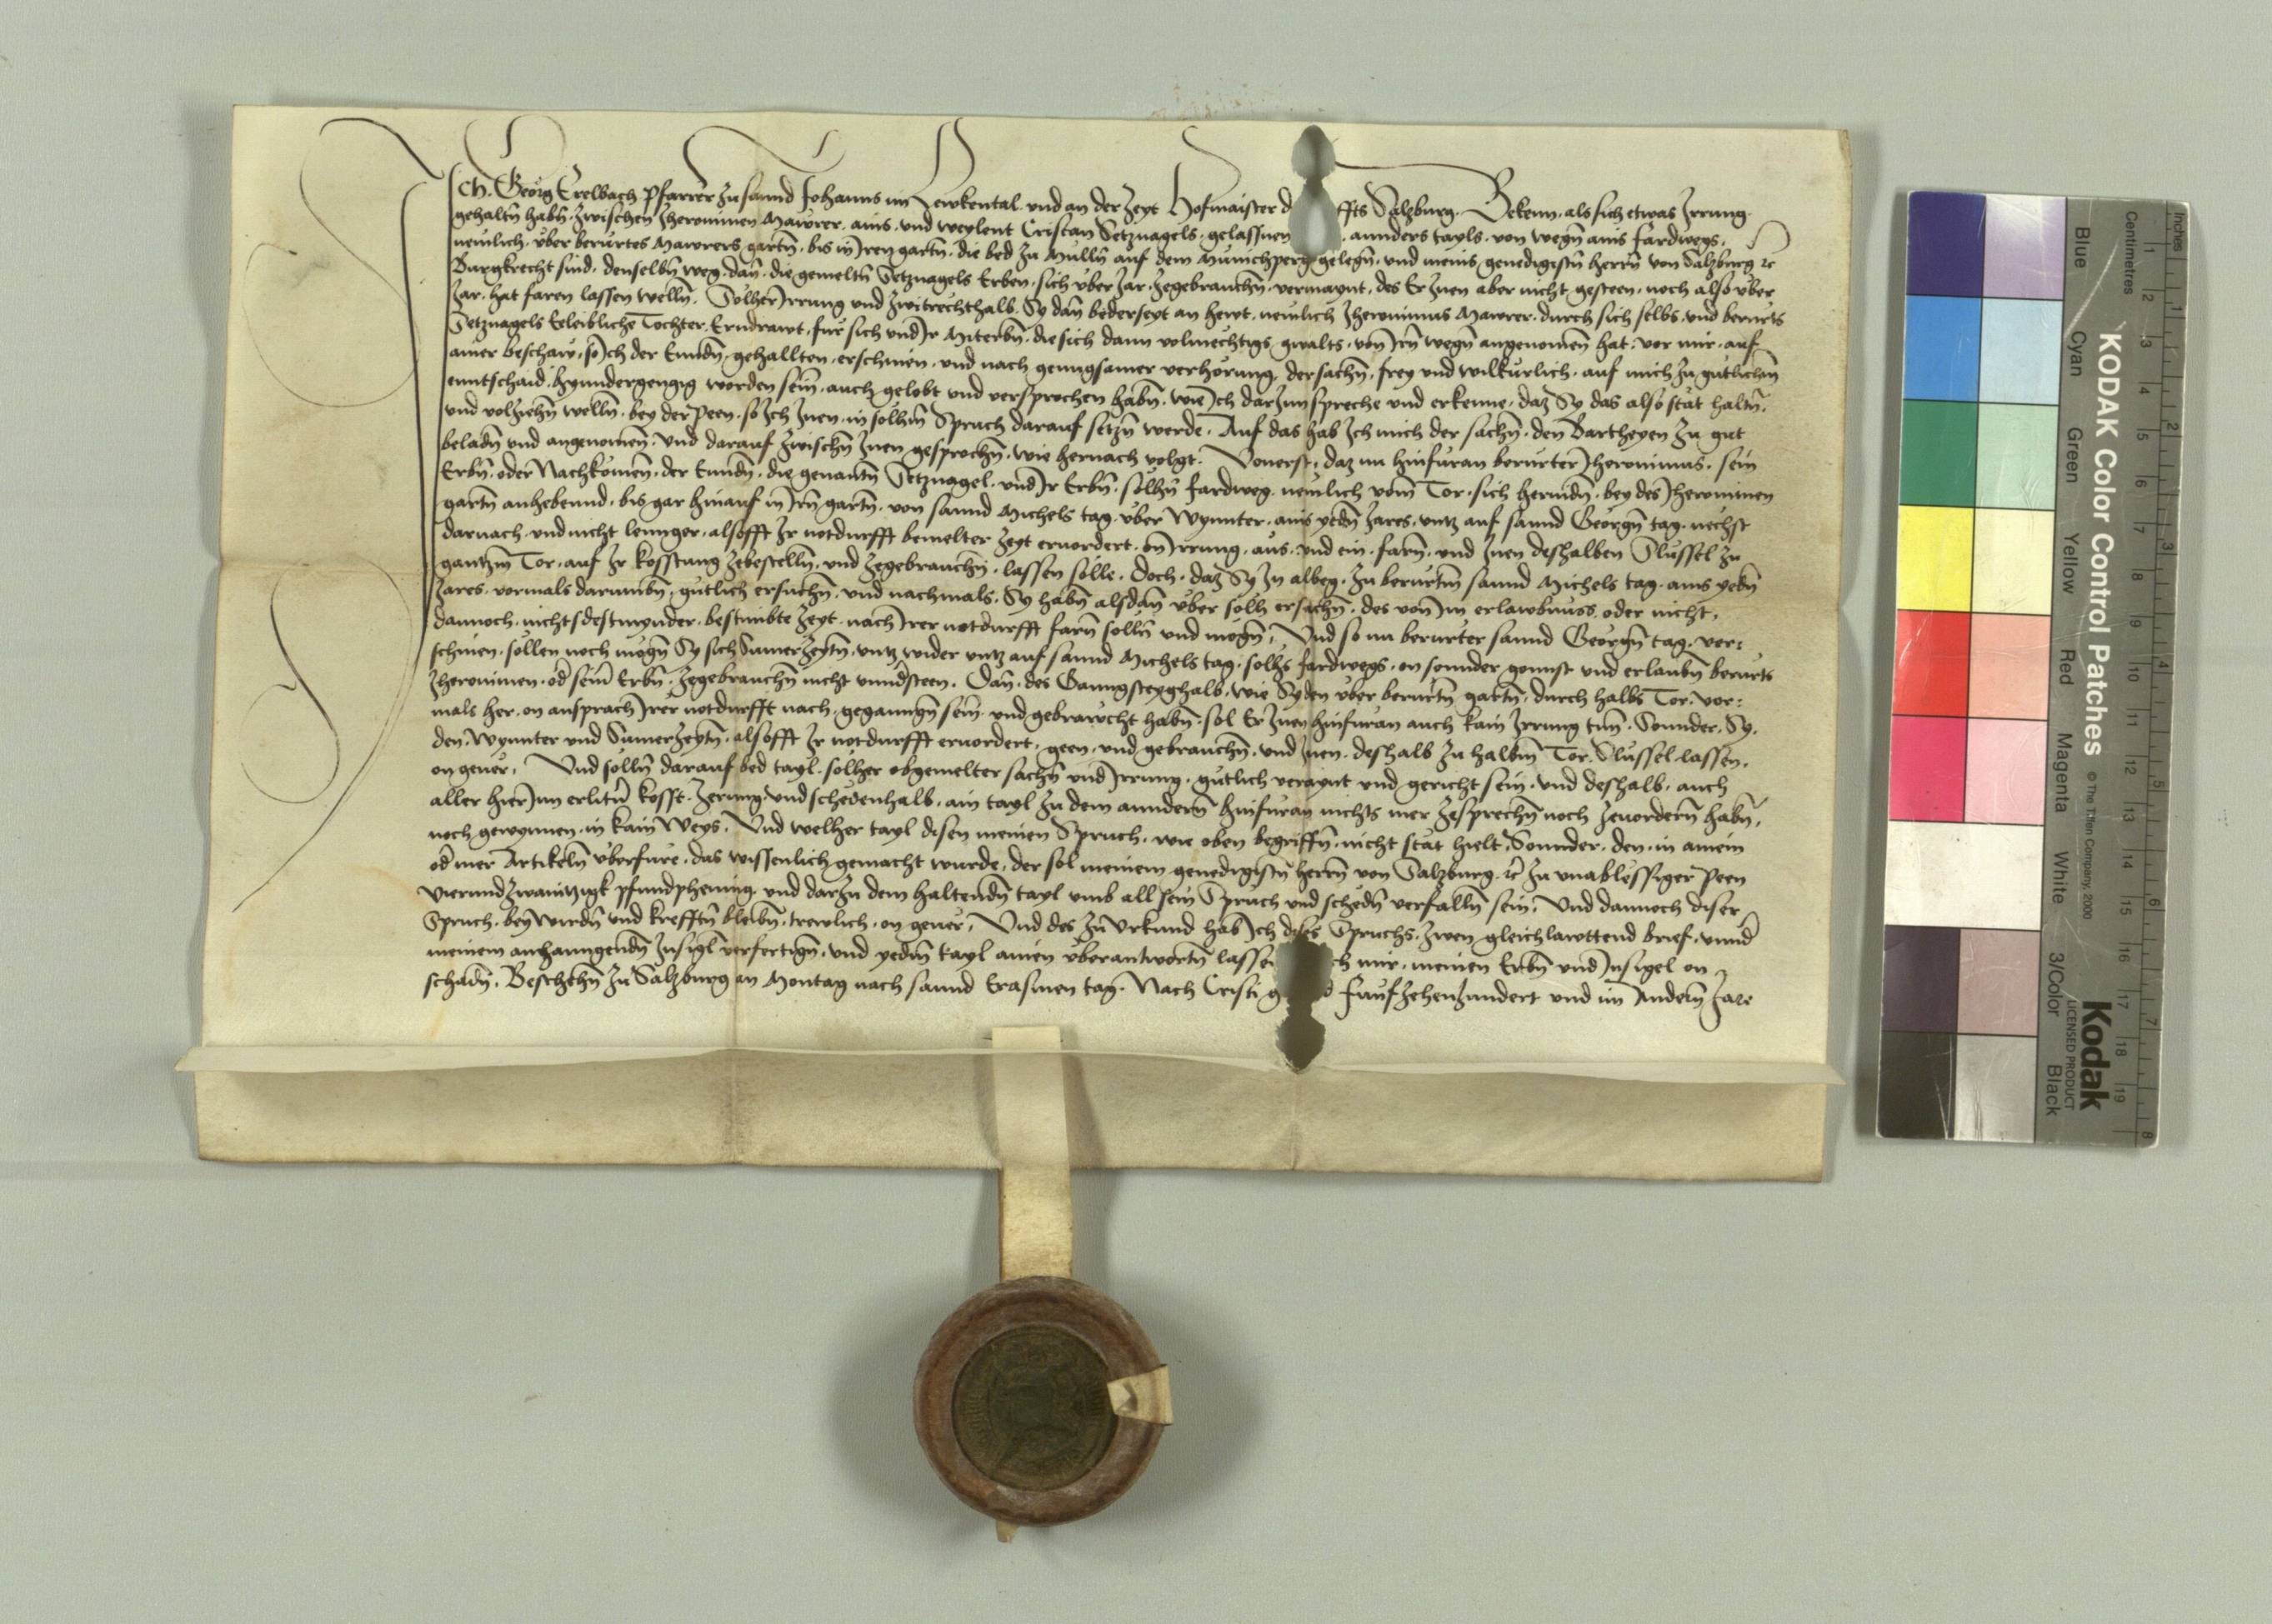 Ich. Georg Erelbach Pfarrer zu sannd Johanns im Lewkental. und an der Zeyt Hofmaister d ffts Salzburg. Bekenn, als sich etwas Irrung
gehaltn̄ habn̄. zwischen Jheronimen Mawrer. ains. und weylent Cristan Setznagels. gelassnen annders tayls. von wegn̄ ains fardwegs.
nemlich. über berürtes Mawrers gartn̄. bis in Iren gartn̄. die bed zu Mulln̄ auf dem Münichperg gelegn̄. und meins genedigistn̄ herrn̄ von Salzburg ꝛc
Burgkrecht sind. denselbn̄ weg. dan̄. die gemeltn̄ Setznagels Erben. sich über Jar. zegebrauchn̄. vermaynt. des Er Inen aber nicht gesteen. noch also über
Jar. hat faren lassen welln̄. Solher Irrung und zwitrechthalb. Sy dan̄ bederseyt an hewt. nemlich Jheronimus Mawrer. durch sich selbs. und berürts
Setznagels Eeleibliche Tochter. Erndrawt. für sich und Ir Miterbn̄. die sich dann volmechtigs gwalts. von Irn̄ wegn̄ angenomen̄ hat. vor mir. auf
ainer beschaw. so Ich der Enndn̄. gehallten. erschinen. und nach genugsamer verhörung. der sachn̄. frey und wilkürlich. auf mich zu gütlichn̄
enntschaid. hynndergengig worden sein̄. auch gelobt und versprochen habn̄. wie Ich darInn spreche und erkenne. daz Sy das also stät haltn̄.
und volziehn̄ welln̄. bey der Peen. so Ich Inen. in solhm̄ Spruch darauf setzn̄ werde. Auf das hab Ich mich der sachn̄. den Partheyen zu gut
beladn̄ und angenomen̄. Und darauf zwischn̄ Inen gesprochn̄. wie hernach volgt. Vonerst. daz nu hinfüran berürter Jheronimus. sein
Erbn̄. oder Nachkomen̄. der Enndn̄. die genantn̄ Setznagel. und Ir Erbn̄. solhn̄ fardweg. nemlich vom̄ Tor. sich herindn̄. bey des Jheronimen
gartn̄ anhebennd. bis gar hinauf in Irn̄ gartn̄. von sannd Michels tag. über Wynnter. ains yedn̄ Jares. untz auf sannd Georgn̄ tag. nechst
darnach. und nicht lennger. alsofft Ir notdurfft bemelter Zeyt ervordert. on Irrung. aus. und ein. farn̄. und Inen deshalben Slüssel zu
gantzm̄ Tor. auf Ir kosstung zebestelln̄. und zegebrauchn̄. lassen solle. Doch. daz Sy In albeg. zu berürtm̄ sannd Michels tag. ains yedn̄
Jares. vormals darumbn̄. gütlich ersuchn̄. und nachmals. Sy habn̄ alsdan̄ über solh ersuchn̄. des von Im erlawbnuss. oder nicht.
dannoch. nichtsdestmynder. bestimbte Zeyt. nach Irer notdurfft farn̄ solln̄ und mögn̄. Und so nu berürter sannd Georgn̄ tag. ver⸗
schinen. sollen noch mögn̄ Sy sich Sumerzeytn̄. untz wider untz auf sannd Michels tag. solhs fardwegs. on sonnder gonnst und erlaubn̄ berürts
Jheronimen. od̄ sein̄ Erbn̄. zegebrauchn̄ nicht unndsteen. Dan̄. des Ganngsteyghalb. wie Sy den über berürtn̄ gartn̄. durch halbs Tor. vor⸗
mals her. on ansprach Irer notdurfft nach. geganngn̄ sein̄. und gebraucht habn̄. sol Er Inen hinfüran auch kain Irrung tun̄. Sonnder. Sy.
den. Wynnter und Sumerzeytn̄. alsofft Ir notdurfft ervordert. geen. und gebrauchn̄. und Inen. deshalb zu halbm̄ Tor. Slüssel. lassen.
on gever. Und solln̄ darauf bed tayl. solher obgemelter sachn̄ und Irrung. gütlich veraynt und gericht sein. und deshalb. auch
aller hierInn erlitn̄ kosst. Zerung und schedenhalb. ain tayl zu dem anndern̄ hinfüran nichts mer zesprechn̄ noch zevordern̄ habn̄.
noch gewynnen. in kain Weys. Und welher tayl disen meinen Spruch. wie oben begriffn̄. nicht stät hielt. Sonnder. den. in ainem
od̄ mer Artikeln̄ überfüre. das wissenlich gemacht wurde. der sol meinem genedigistn̄ herrn̄ von Salzburg. ꝛc zu unablessiger Peen
vierundzwaintzigk pfundphening. und darzu dem haltendn̄ tayl umb all sein Sprüch und schedn̄ verfalln̄ sein. Und dannoch diser
Spruch. bey wirdn̄ und krefftn̄ bleibn̄. trewlich. on gever. Und des zu Urkund hab Ich dises Spruchs. zwen gleichlawttend brief. unnd̄
meinem anhanngendn̄ Insigl verfertign̄. und yedm̄ tayl ainen überantwortn̄ lassen ch mir. meinen Erbn̄ und Insigel on
schadn̄. Beschehn̄ zu Salzburg an Montag nach sannd Erasmen tag. Nach Cristi g d funfzehenhundert und im Andern̄ Jare
KODAK Color Control Patches © The Tiffen Company, 2000
Kodak
LICENSED PRODUCT
Blue Cyan Green Yellow Red Magenta White 3/Color Black
Inches 1 2 3 4 5 6 7 8
Centimetres 1 2 3 4 5 6 7 8 9 10 11 12 13 14 15 16 17 18 19